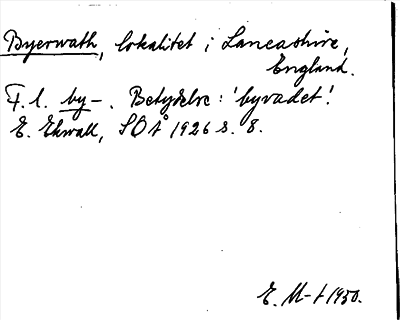 Byerwath, lokalitet i Lancashire,
England.
F. l. by-. Betydelse: 'byvadet'.
E. Ekwall, SOÅ 1926 s. 8.
E. M-t 1950.